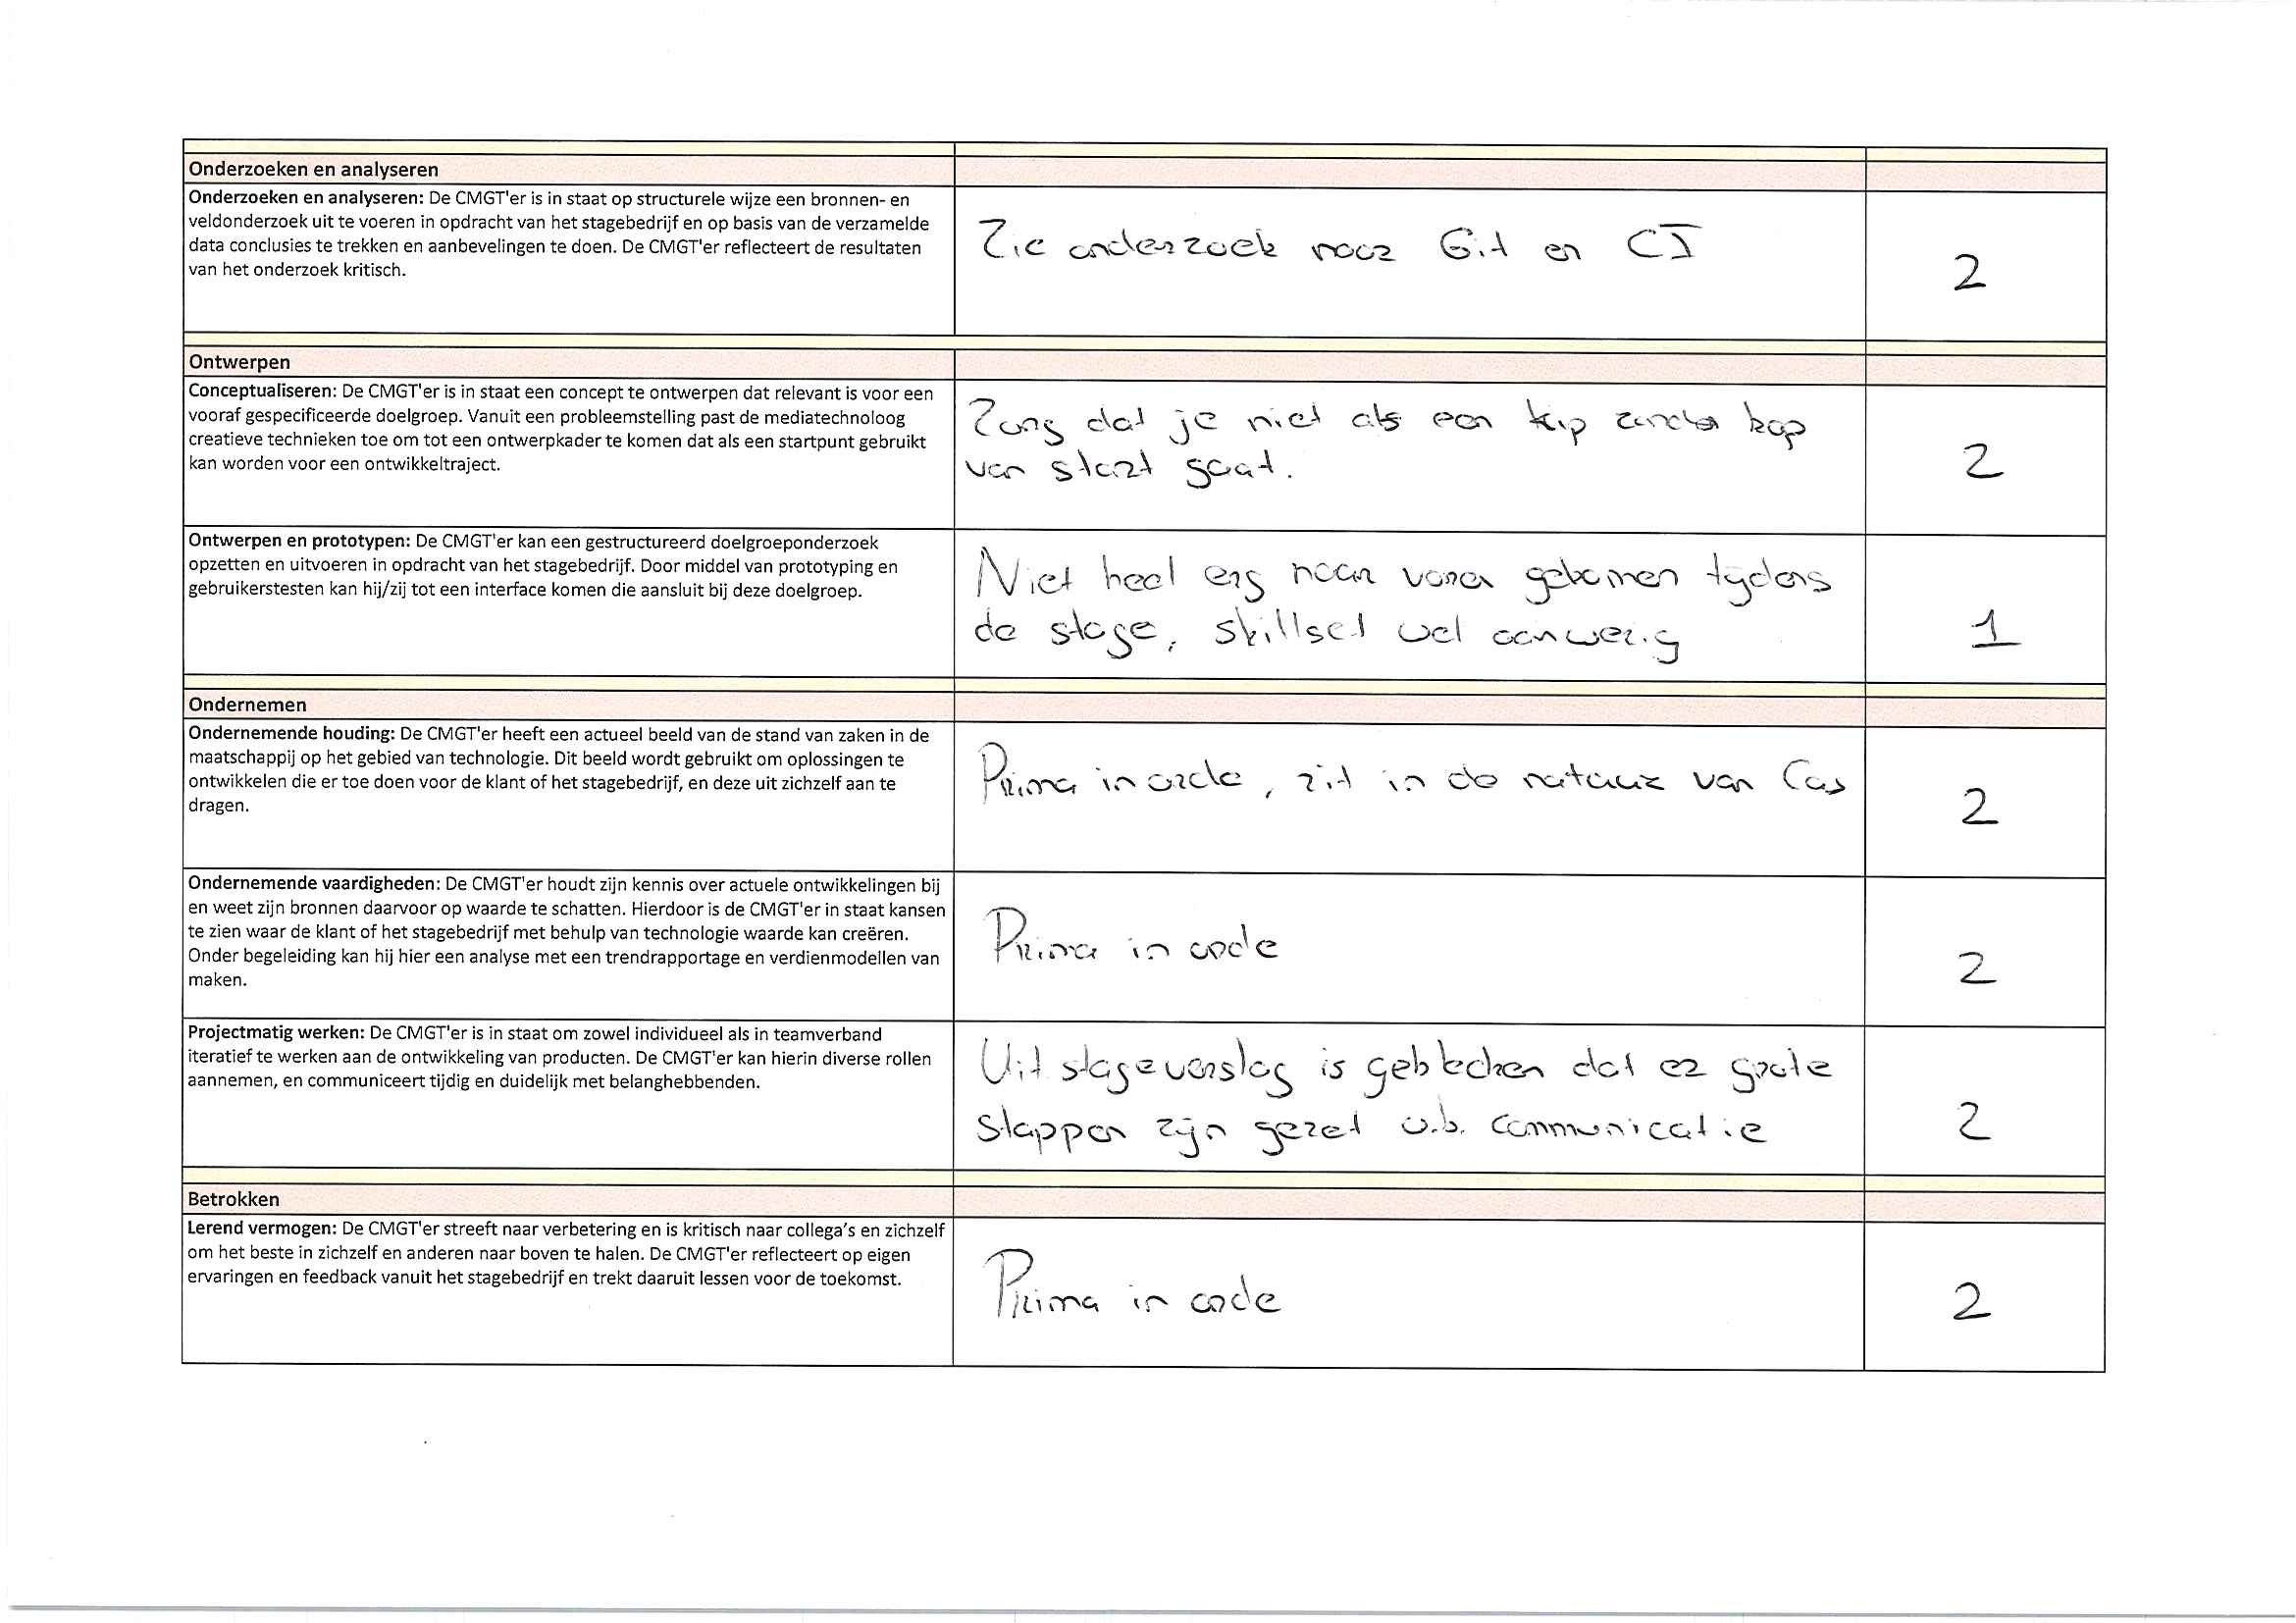 Onderzoeken en analyseren
Onderzoeken en analyseren: De CMGT'er is in staat op structurele wijze een bronnen- en
veldonderzoek uit te voeren in opdracht van het stagebedrijf en op basis van de verzamelde
data conclusies te trekken en aanbevelingen te doen. De CMGT'er reflecteert de resultaten
van het onderzoek kritisch.
Zie onderzoek naar Git en CI
2
Ontwerpen
Conceptualiseren: De CMGT'er is in staat een concept te ontwerpen dat relevant is voor een
vooraf gespecificeerde doelgroep. Vanuit een probleemstelling past de mediatechnoloog
creatieve technieken toe om tot een ontwerpkader te komen dat als een startpunt gebruikt
kan worden voor een ontwikkeltraject.
Zorg dat je niet als een kip zonder kop
van start gaat.
2
Ontwerpen en prototypen: De CMGT'er kan een gestructureerd doelgroeponderzoek
opzetten en uitvoeren in opdracht van het stagebedrijf. Door middel van prototyping en
gebruikerstesten kan hij/zij tot een interface komen die aansluit bij deze doelgroep.
Niet heel erg naar voren gekomen tijdens
de stage, skillset wel aanwezig
1
Ondernemen
Ondernemende houding: De CMGT'er heeft een actueel beeld van de stand van zaken in de
maatschappij op het gebied van technologie. Dit beeld wordt gebruikt om oplossingen te
ontwikkelen die er toe doen voor de klant of het stagebedrijf, en deze uit zichzelf aan te
dragen.
Prima in orde, zit in de natuur van Cas
2
Ondernemende vaardigheden: De CMGT'er houdt zijn kennis over actuele ontwikkelingen bij
en weet zijn bronnen daarvoor op waarde te schatten. Hierdoor is de CMGT'er in staat kansen
te zien waar de klant of het stagebedrijf met behulp van technologie waarde kan creëren.
Onder begeleiding kan hij hier een analyse met een trendrapportage en verdienmodellen van
maken.
Prima in orde
2
Projectmatig werken: De CMGT'er is in staat om zowel individueel als in teamverband
iteratief te werken aan de ontwikkeling van producten. De CMGT'er kan hierin diverse rollen
aannemen, en communiceert tijdig en duidelijk met belanghebbenden.
Uit stageverslag is gebleken dat er grote
stappen zijn gezet o.b. communicatie
2
Betrokken
Lerend vermogen: De CMGT'er streeft naar verbetering en is kritisch naar collega's en zichzelf
om het beste in zichzelf en anderen naar boven te halen. De CMGT'er reflecteert op eigen
ervaringen en feedback vanuit het stagebedrijf en trekt daaruit lessen voor de toekomst.
Prima in orde
2